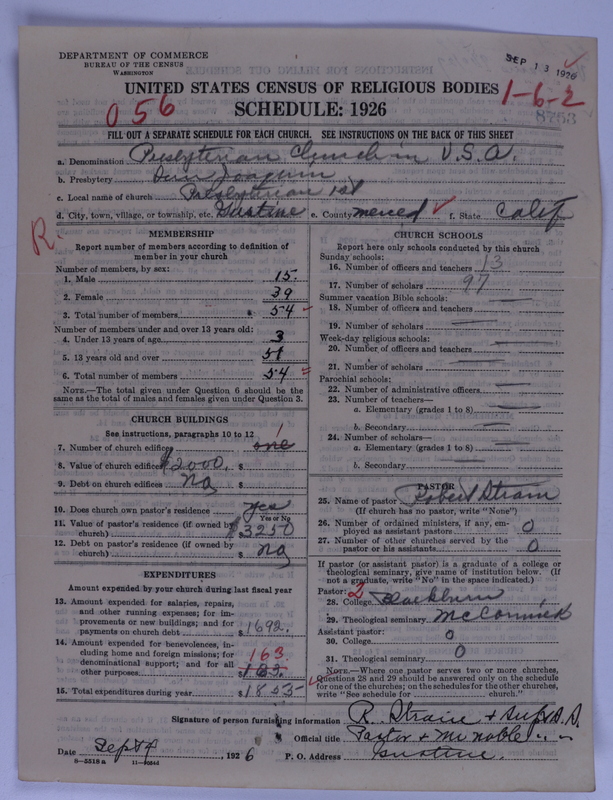 DEPARTMENT OF COMMERCE
BUREAU OF THE CENSUS
WASHINGTON
SEP 13 1926
UNITED STATES CENSUS OF RELIGIOUS BODIES
1-6-2
056
SCHEDULE: 1926
8753
FILL OUT A SEPARATE SCHEDULE FOR EACH CHURCH. SEE INSTRUCTIONS ON THE BACK OF THIS SHEET
a. Denomination Presbyterian Church in U.S.A.
b. Presbytery San Joaquin
c. Local name of church Presbyterian 1st
d. City, town, village, or township, etc. Gustine e. County Merced f. State Calif
R
MEMBERSHIP
Report number of members according to definition of
member in your church
Number of members, by sex:
1. Male 15
2. Female 39
3. Total number of members 54
Number of members under and over 13 years old:
4. Under 13 years of age 3
5. 13 years old and over 51
6. Total number of members 54
NOTE.—The total given under Question 6 should be the
same as the total of males and females given under Question 3.
CHURCH BUILDINGS
See instructions, paragraphs 10 to 12
7. Number of church edifices one 1
8. Value of church edifices $2000. $
9. Debt on church edifices No $
10. Does church own pastor's residence? yes
Yes or No
11. Value of pastor's residence (if owned by
church) $3250
12. Debt on pastor's residence (if owned by
church) $ no
EXPENDITURES
Amount expended by your church during last fiscal year
13. Amount expended for salaries, repairs,
and other running expenses; for im-
provements or new buildings; and for
payments on church debt $1692.
14. Amount expended for benevolences, in-
cluding home and foreign missions; for
denominational support; and for all
other purposes 163. $163.
15. Total expenditures during year $1855
CHURCH SCHOOLS
Report here only schools conducted by this church
Sunday schools:
16. Number of officers and teachers 13
17. Number of scholars 97
Summer vacation Bible schools:
18. Number of officers and teachers
19. Number of scholars
Week-day religious schools:
20. Number of officers and teachers
21. Number of scholars
Parochial schools:
22. Number of administrative officers
23. Number of teachers—
a. Elementary (grades 1 to 8)
b. Secondary
24. Number of scholars—
a. Elementary (grades 1 to 8)
b. Secondary
PASTOR
25. Name of pastor Robert Strain
(If church has no pastor, write "None")
26. Number of ordained ministers, if any, em-
ployed as assistant pastors 0
27. Number of other churches served by the
pastor or his assistants 0
If pastor (or assistant pastor) is a graduate of a college or
theological seminary, give name of institution below. (If
not a graduate, write "No" in the space indicated.)
Pastor: 2
28. College Blackburn
29. Theological seminary McCormick
Assistant pastor:
30. College 0
31. Theological seminary 0
NOTE.—Where one pastor serves two or more churches,
Questions 28 and 29 should be answered only on the schedule
for one of the churches; on the schedules for the other churches,
write "See schedule for church."
Signature of person furnishing information R. Strain + Supt S.S.
Official title Pastor + Mc noble
Date Sept 4, 1926 P. O. Address Gustine.
8—5518 a